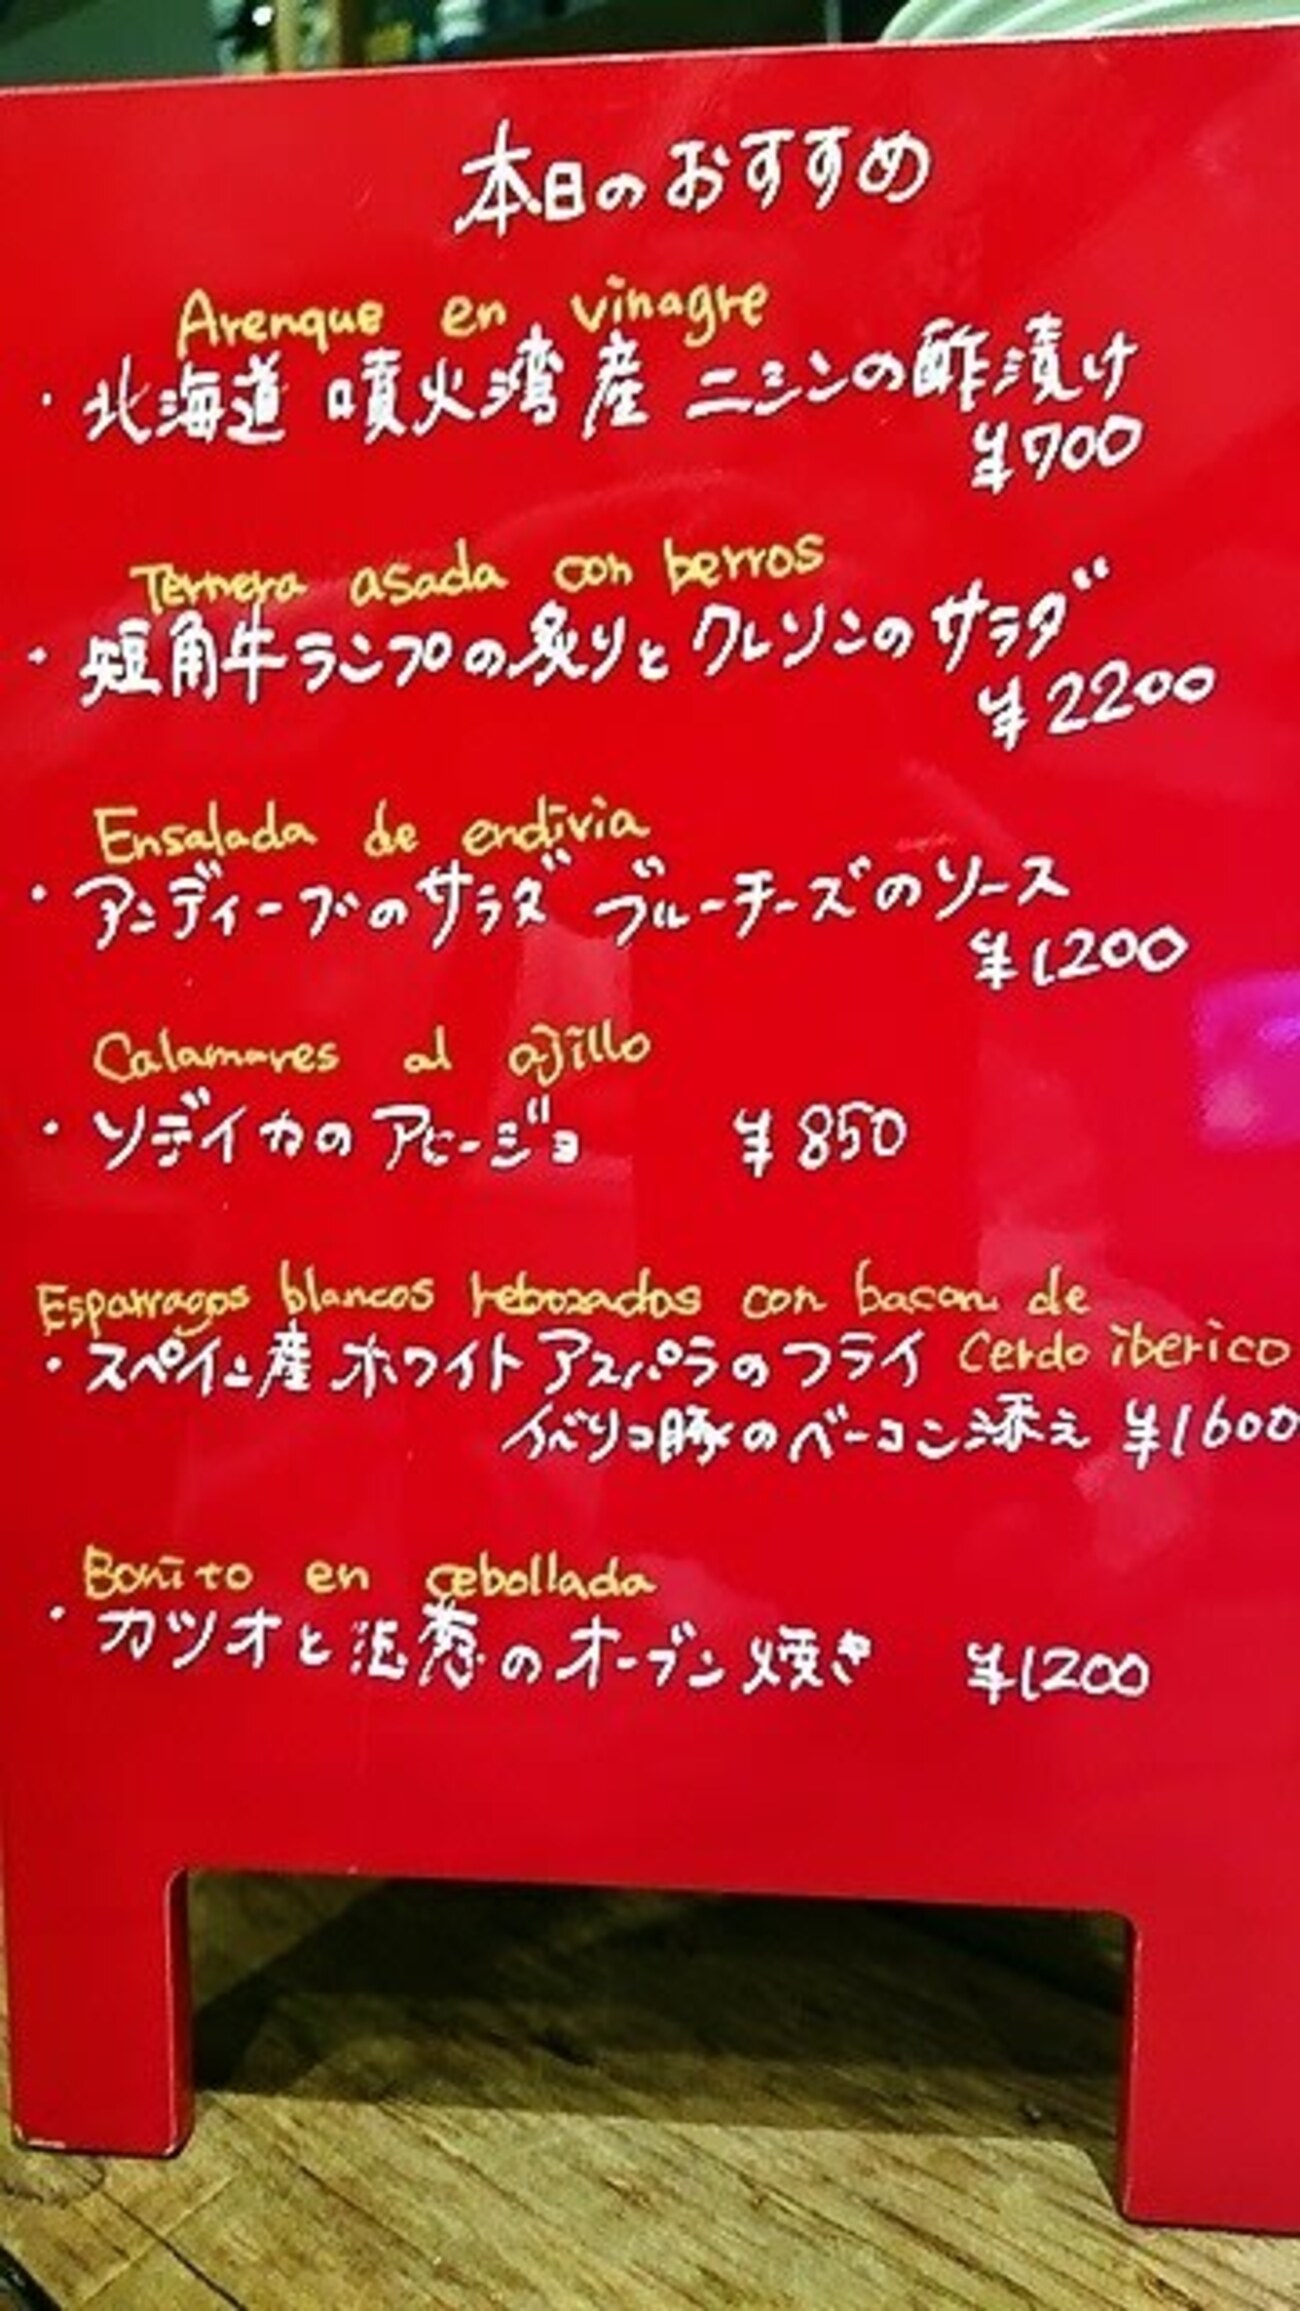 本日のおすすめ
Arenque en vinagre
・北海道 噴火湾産 ニシンの酢漬け
¥700
Ternera asada con berros
・短角牛ランプの炙りとクレソンのサラダ
¥2200
Ensalada de endivia
・アンディーブのサラダ ブルーチーズのソース
¥1200
Calamares al ajillo
・ソデイカのアヒージョ ¥850
Esparragos blancos rebozados con bacon de
・スペイン産 ホワイトアスパラのフライ Cerdo iberico
イベリコ豚のベーコン添え ¥1600
Bonito en cebollada
・カツオと玉葱のオーブン焼き ¥1200